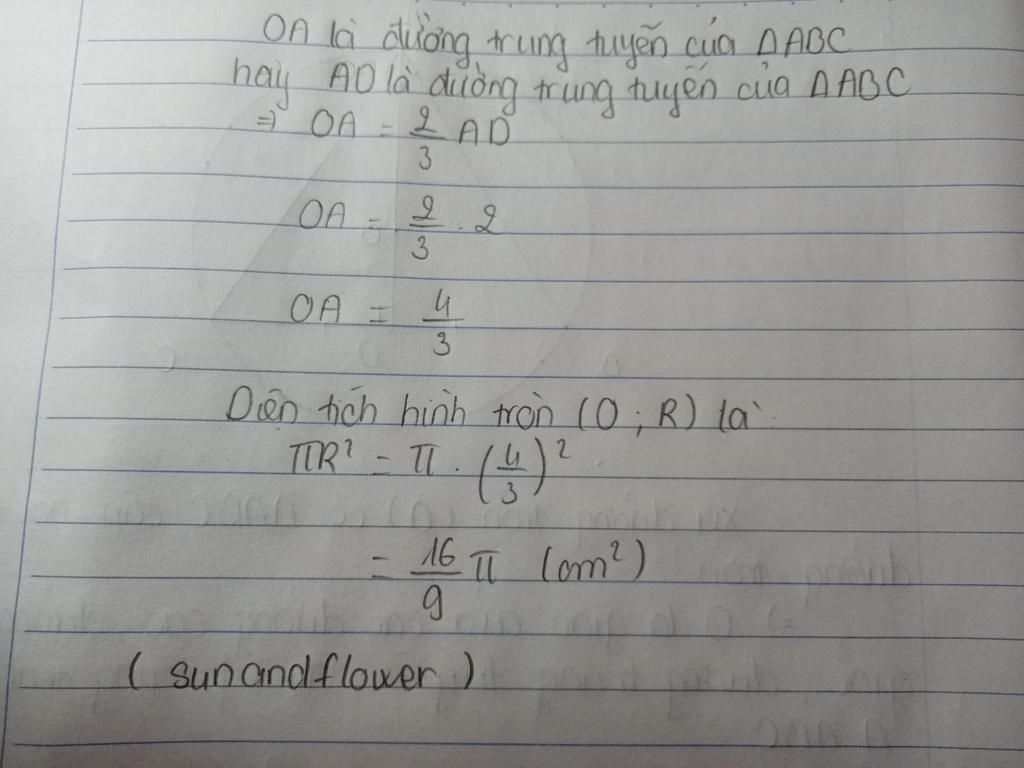 OA là đường trung tuyến của ΔABC
hay AD là đường trung tuyến của ΔABC
⇒ OA = 2/3 AD
OA = 2/3 . 2
OA = 4/3
Diện tích hình tròn (O ; R) là
πR² = π . (4/3)²
= 16/9 π (cm²)
( sunandflower )